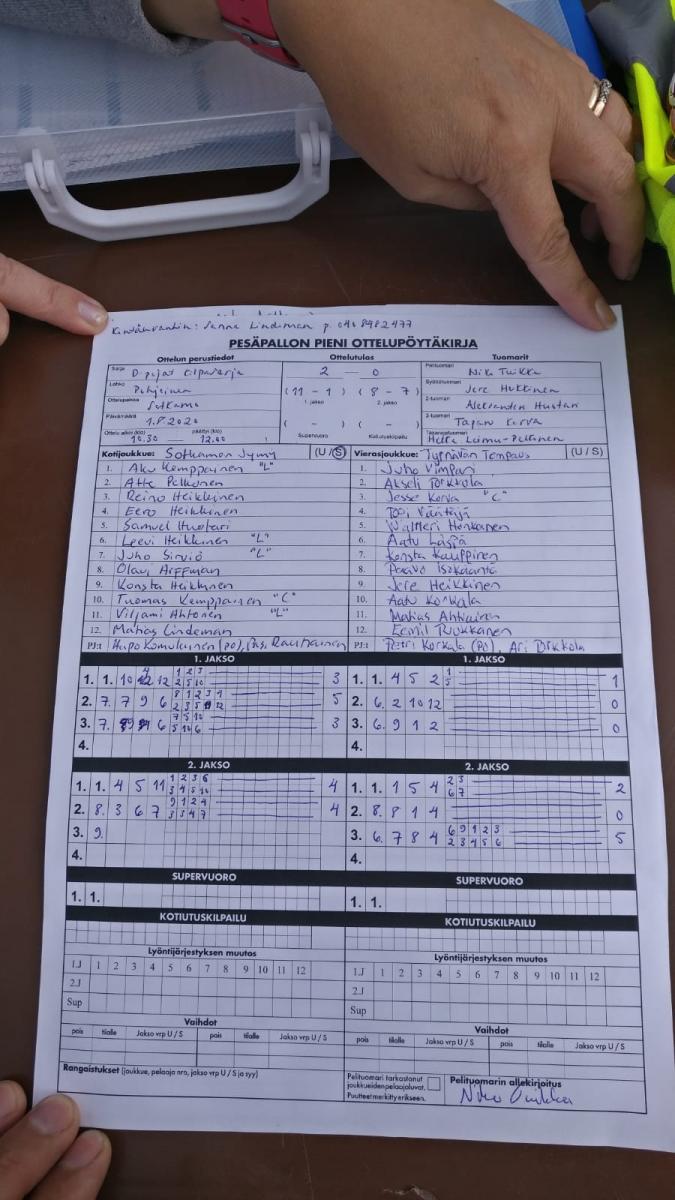 Kirjanpitäjä: Sanna Lindeman p. 040 8482477
PESÄPALLON PIENI OTTELUPÖYTÄKIRJA
Ottelun perustiedot Ottelutulos Tuomarit
Sarja D-pojat kilpasarja 2 — 0 Pelituomari
Lohko Pohjoinen (11 - 1) (8 - 7) Syöttötuomari Jere Hukkinen
Ottelupaikka Sotkamo 1. jakso 2. jakso 2-tuomari Aleksanteri Huotari
Päivämäärä 1.8.2020 ( - ) ( - ) 3-tuomari Tapani Korva
Ottelu alkoi (klo) 10.30 päättyi (klo) 12.00 Supervuoro Kotiutuskilpailu Takarajatuomari Leimu-Pelkonen
Kotijoukkue: Sotkamon Jymy (U / S) Vierasjoukkue: Tyrnävän Tempaus (U / S)
1. Aku Kemppainen "L" 1. Juho Vimpari
2. Atte Pelkonen 2. Akseli Törkkola
3. Reino Heikkinen 3. Jesse Korva "C"
4. Eero Heikkinen 4. Topi Väätäjä
5. Samuel Huotari 5. Waltteri Honkanen
6. Leevi Heikkinen "L" 6. Aatu
7. Juho Sirviö "L" 7. Konsta Kauppinen
8. Olavi Arffman 8. Paavo Isokääntä
9. Konsta Heikkinen 9. Jere Heikkinen
10. Tuomas Kemppainen "C" 10. Aatu Korkala
11. Viljami Ahtonen "L" 11. Matias Ahtiainen
12. Matias Lindeman 12. Eemil Ruukkanen
PJ:t Komulainen (po), Rautiainen PJ:t Petri Korkala (po), Ari Törkkola
1. JAKSO 1. JAKSO
1. 1. 10 12 12 3 1. 1. 4 5 2 1
2. 7. 7 9 6 5 2. 6. 2 10 12 0
3. 7. 6 3 3. 6. 9 1 2 0
4. 4.
2. JAKSO 2. JAKSO
1. 1. 4 5 11 4 1. 1. 1 5 4 2
2. 8. 3 6 7 4 2. 8. 8 1 4 0
3. 9. 3. 6. 7 8 4 5
4. 4.
SUPERVUORO SUPERVUORO
1. 1. 1. 1.
KOTIUTUSKILPAILU KOTIUTUSKILPAILU
Lyöntijärjestyksen muutos Lyöntijärjestyksen muutos
1.J 1 2 3 4 5 6 7 8 9 10 11 12 1.J 1 2 3 4 5 6 7 8 9 10 11 12
2.J 2.J
Sup Sup
Vaihdot Vaihdot
pois tilalle Jakso vrp U / S pois tilalle Jakso vrp U / S pois tilalle Jakso vrp U / S pois tilalle Jakso vrp U / S
Rangaistukset (joukkue, pelaaja nro, jakso vrp U / S ja syy) Pelituomari tarkastanut Pelituomarin allekirjoitus
joukkueiden pelaajaluvat.
Puutteet merkitty erikseen.